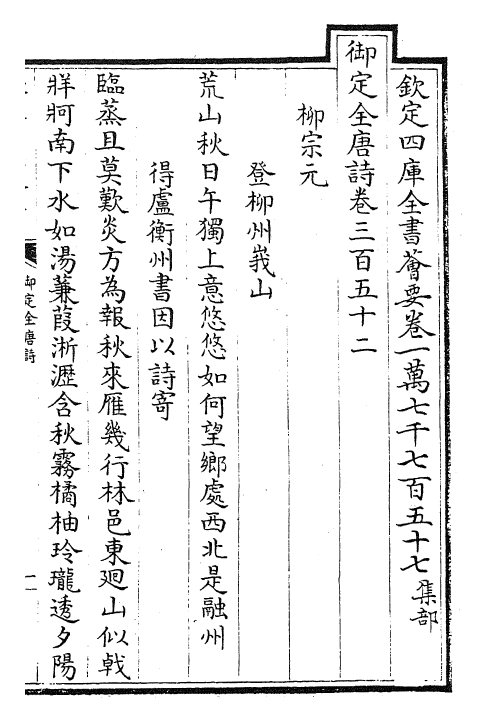 欽定四庫全書薈要卷一萬七千七百五十七集部
御定全唐詩卷三百五十二
柳宗元
登柳州峩山
荒山秋日午獨上意悠悠如何望鄉處西北是融州
得盧衡州書因以詩寄
臨蒸且莫歎炎方為報秋來雁幾行林邑東廻山似㦸
牂牁南下水如湯蒹葭淅瀝含秋霧橘柚玲瓏透夕陽
御定全唐詩